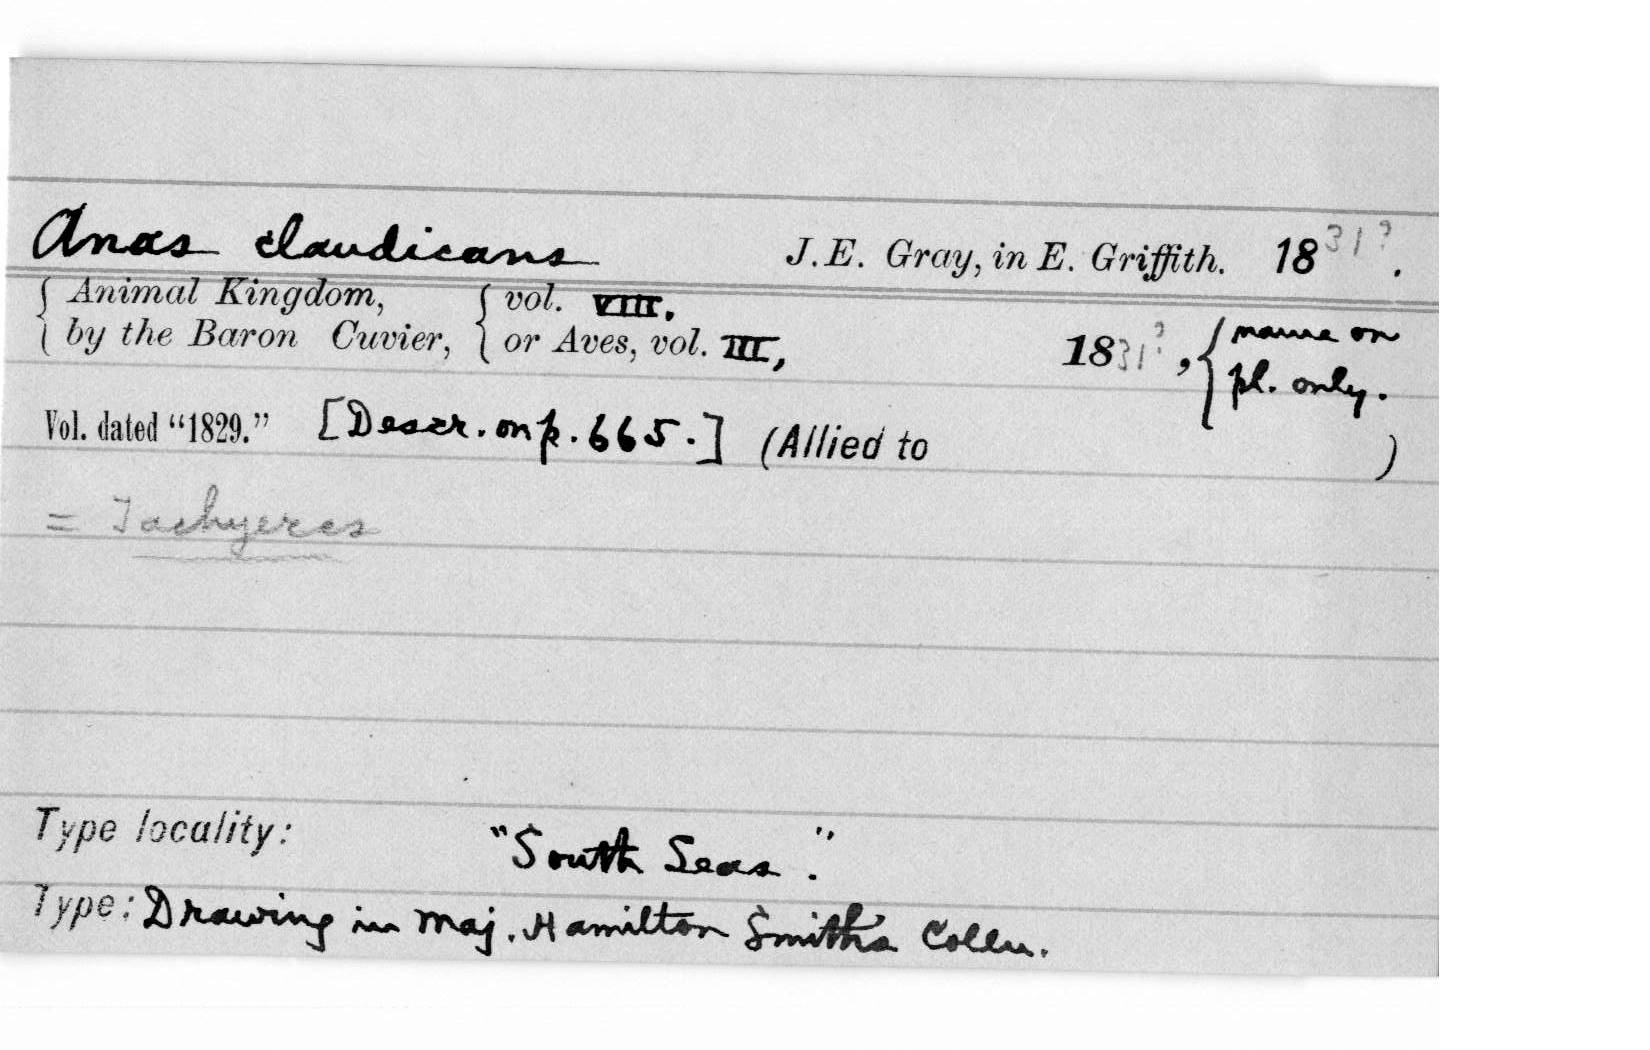 Anas claudicans J.E. Gray, in E. Griffith. 1831?.
{ Animal Kingdom, { vol. VIII.
{ by the Baron Cuvier, { or Aves, vol. III, 1831?, { name on
pl. only.
Vol. dated “1829.” [Descr. on p. 665.] (Allied to )
= Tachyeres
Type locality: "South Seas."
Type: Drawing in Maj. Hamilton Smith's Colln.